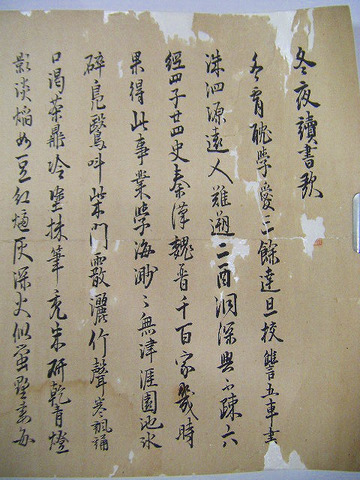 冬夜讀書歌
冬宵耽學愛三餘達旦校讎五車書
洙泗源遠人難遡二酉洞深與不疎六
經四子廿四史秦漢魏晉千百家幾時
果得此事業學海渺々無津涯園池氷
碎鳧鷖叫柴門霰灑竹聲寒飆補
口渴茶鼎冷坐抹筆禿朱研乾有燈
影淡焰如豆紅爐灰深火似螢